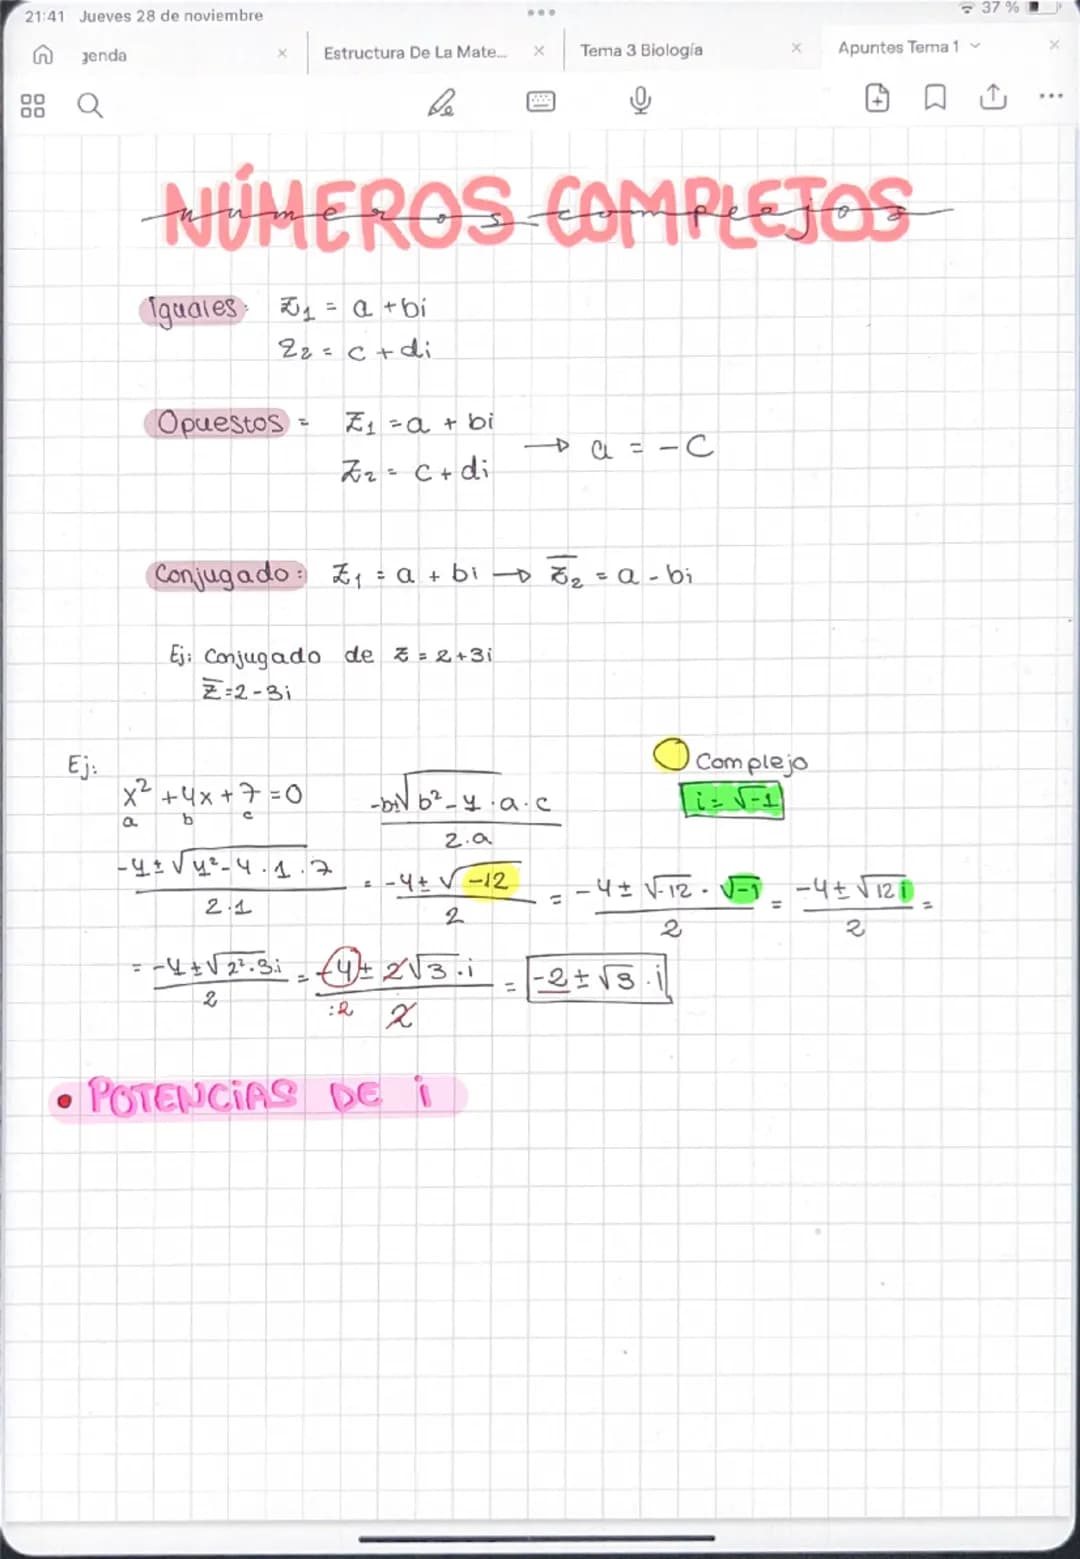 21:41 Jueves 28 de noviembre
37 %
genda
Estructura De La Mate...
Tema 3 Biología
Apuntes Tema 1
NÚMEROS COMPLEJOS
numeros complejos
Iguales: z₁ = a + bi
z₂ = c + di
Opuestos = z₁ = a + bi
→ a = -c
z₂ = c + di
Conjugado: z₁ = a + bi → z̅₂ = a - bi
Ej: Conjugado de z = 2+3i
z̅ = 2 - 3i
Complejo
Ej:
x² + 4x + 7 = 0
a b c
-b±√b²-4·a·c / 2·a
i = √-1
-4±√4²-4·1·7 / 2·1 = -4±√-12 / 2 = -4±√-12·√-1 / 2 = -4±√12i / 2 =
= -4±√2²·3·i / 2 = -4±2√3·i / 2 = -2±√3·i
:2
• POTENCIAS DE i